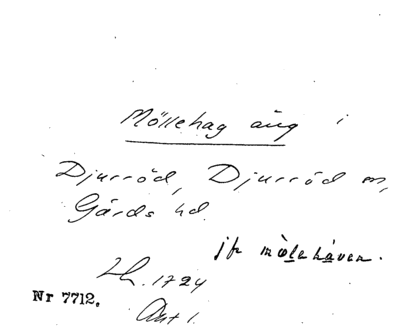 Möllehag äng i
Djurröd, Djurröd sn,
Gärds hd.
jfr mòlehåven.
Lh. 1724
Akt 1.
Nr 7712.